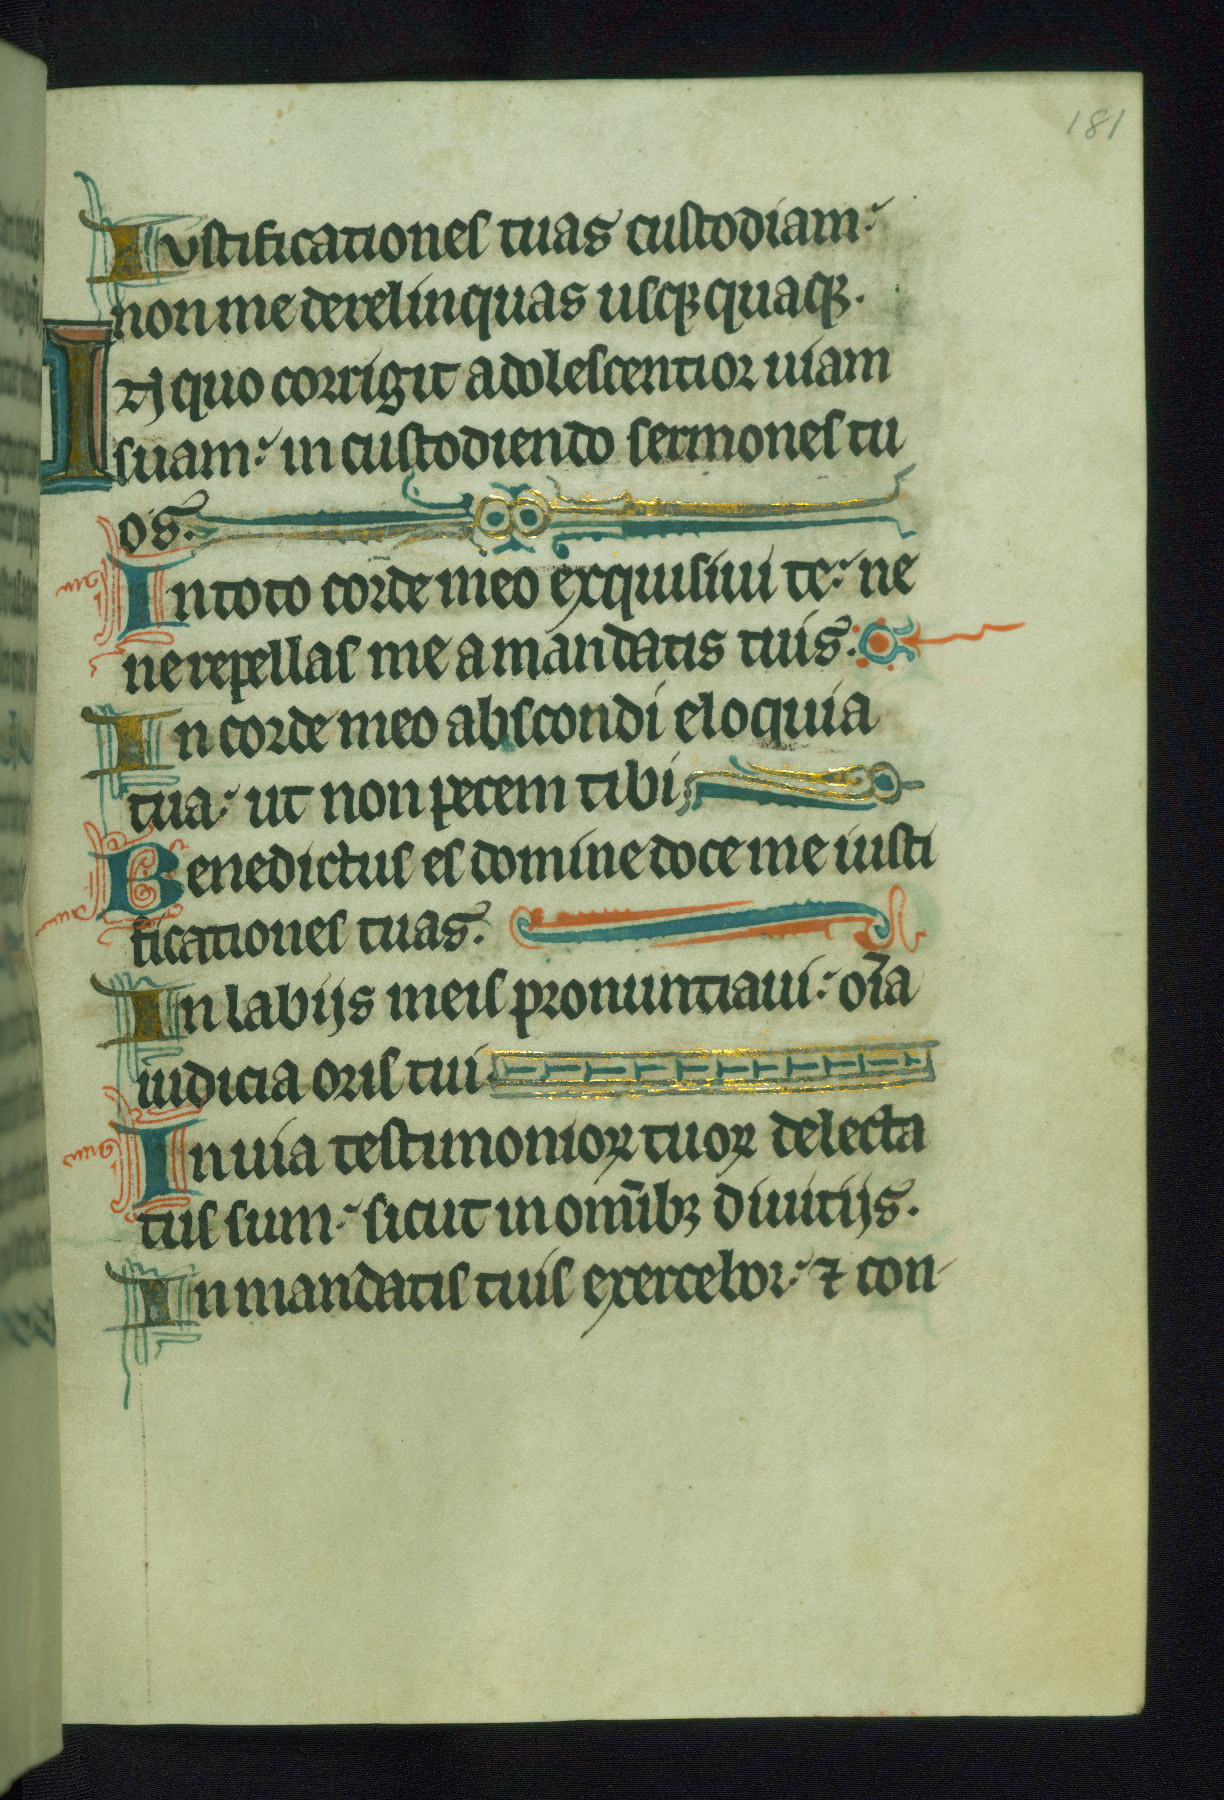 181
Iustificationes tuas custodiam:
non me derelinquas usqꝫ quaqꝫ.
In quo corrigit adolescentior uiam
suam: in custodiendo sermones tu
os.
In toto corde meo exquisiui te: ne
ne repellas me a mandatis tuis.
In corde meo abscondi eloquia
tua: ut non peccem tibi
Benedictus es domine doce me iusti
ficationes tuas.
In labijs meis pronuntiaui: oīa
iudicia oris tui
In uia testimonioꝝ tuoꝝ delecta
tus sum: sicut in omībꝫ diuitijs.
In mandatis tuis exercebor: ⁊ con-